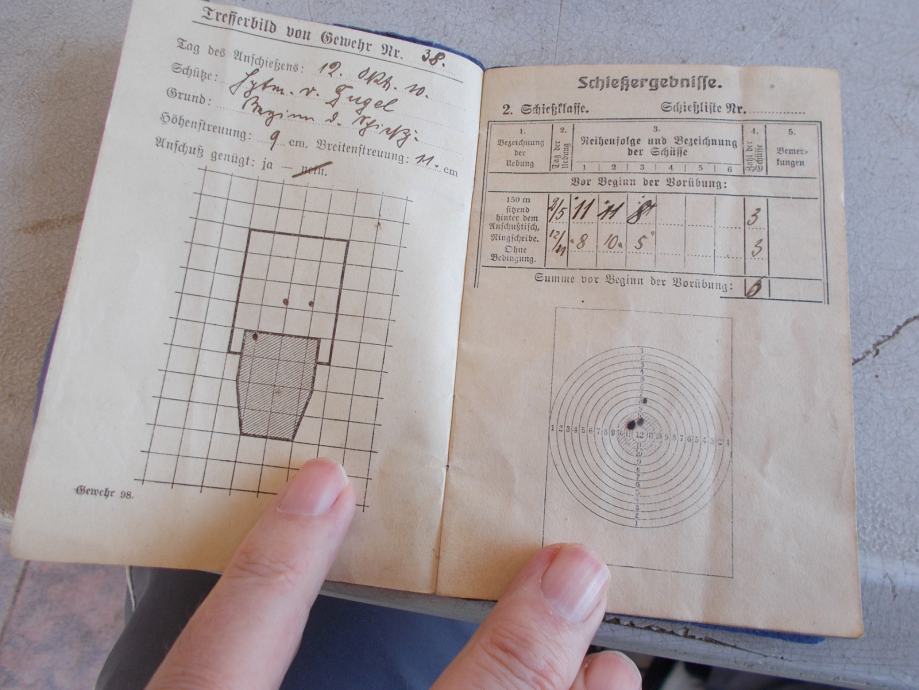 Trefferbild von Gewehr Nr. 38.
Tag des Anschießens: 12. Okt. 10.
Schütze:
Grund: Beginn d.
Höhenstreuung: 9 cm. Breitenstreuung: 11 cm
Anschuß genügt: ja — nein.
Gewehr 98.
Schießergebnisse.
2. Schießklasse. Schießliste Nr.
1. 2. 3. 4. 5.
Bezeichnung der Uebung
Tag der Uebung
Reihenfolge und Bezeichnung der Schüsse
Zahl der Schüsse
Bemerkungen
1 2 3 4 5 6
Vor Beginn der Vorübung:
150 m
sitzend
hinter dem
Anschußtisch.
Ringscheibe.
Ohne
Bedingung.
11 11 8 3
8 10 5 3
Summe vor Beginn der Vorübung: 6
1 2 3 4 5 6 7 8 9 10 11 12 11 10 9 8 7 6 5 4 3 2 1